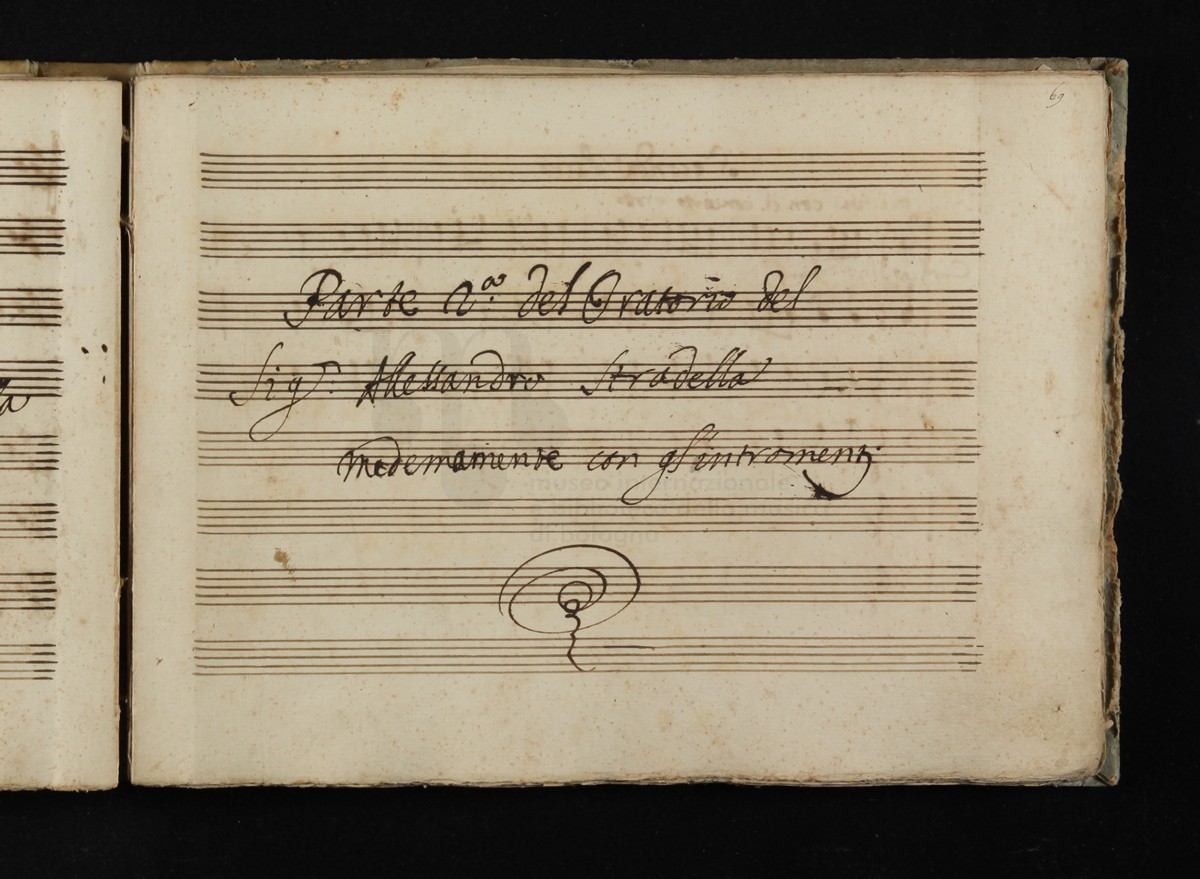 69
Parte 2.ª del Oratorio del
Sig.r Allessandro Stradella
medemamente con gl'intromenti
museo internazionale
e biblioteca della musica
di bologna